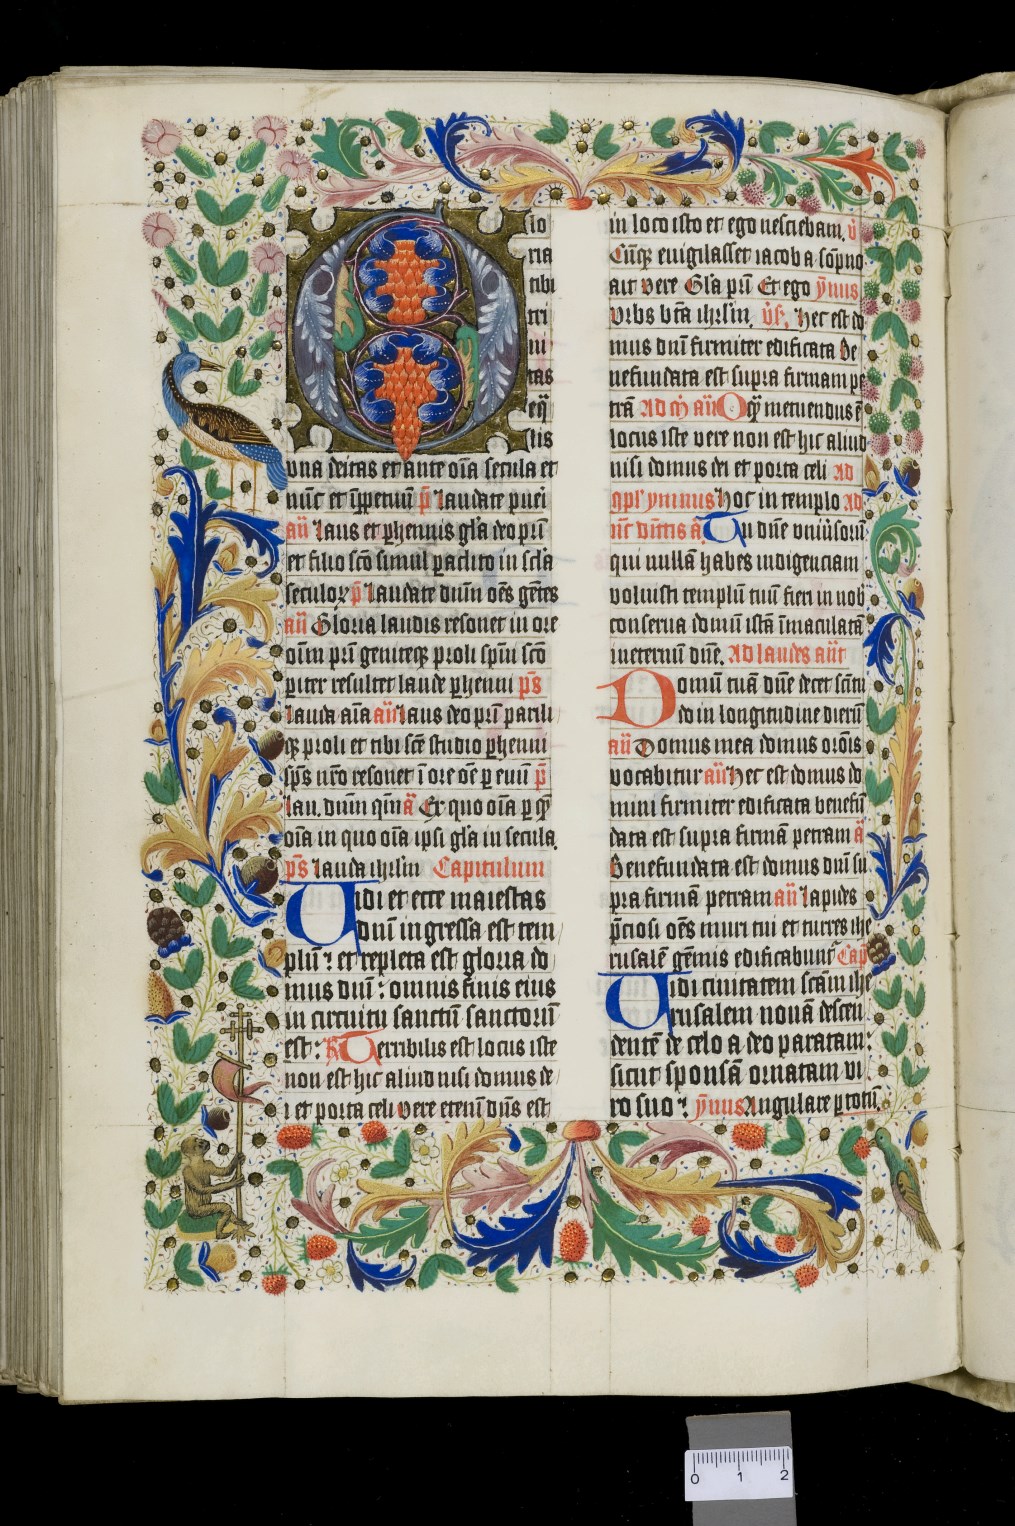 lo
ria
tibi
tri
ni
tas
eq̄
lis
vna deitas et ante oīa secula et
nūc et īppetuū p̄ laudate pueri
añ laus et phennis gl̄a deo pr̄i
et filio scō simul paclito in scl̄a
seculoꝝ p̄ laudate dnm̄ oēs gētes
añ Gloria laudis resonet in ore
oīm pr̄i geniteq̄ proli sp̄ui scō
piter resultet laude phenni ps̄
lauda aīa añ laus deo pr̄i parili
q̄ proli et tibi scē studio phenni
sp̄s nr̄o resonet ī ore oē p euū p̄
lau. dnm̄ qm̄ ā Ex quo oīa p q̄
oīa in quo oīa ipsi gl̄a in secula.
ps̄ lauda ihrlm̄ Capitulum
Uidi et ecce maiestas
dnī ingressa est tem
plū: et repleta est gloria do
mus dnī: omnis finis eius
in circuitu sanctū sanctorū
est: R̄ Terribilis est locus iste
non est hic aliud nisi domus de
i et porta celi vere etenī dn̄s est
in loco isto et ego nesciebam. v̄
Cūq̄ euigilasset iacob a sōpno
ait vere Gl̄a pr̄i Et ego ȳnus
Vrbs btā ihrlm̄. v̄s. Hec est do
mus dnī firmiter edificata Be
nefundata est supra firmam pe
trā Ad m̄ añ O q̄ metuendus ē
locus iste vere non est hic aliud
nisi domus dei et porta celi ad
9pl' ymnus Hoc in templo ad
nūc dimitis ā Tu dn̄e vniūsorū
qui nullā habes indigenciam
voluisti templū tuū fieri in nob̄
conserua domū istā īmaculatā
ineternū dn̄e. Ad laudes añt
Domū tuā dn̄e decet scītu
do in longitudine dierū
añ Domus mea domus orōis
vocabitur añ Hec est domus do
mini firmiter edificata benefū
data est supra firmā petram ā
Benefundata est domus dnī su
pra firmā petram añ lapides
p̄ciosi oēs muri tui et turres ihe
rusalē gēmis edificabunt' Cap̄
Uidi ciuitatem scām ihe
rusalem nouā descen
dentē de celo a deo paratam:
sicut sponsā ornatam vi
ro suo: ȳnus Angulare p totū.
0 1 2